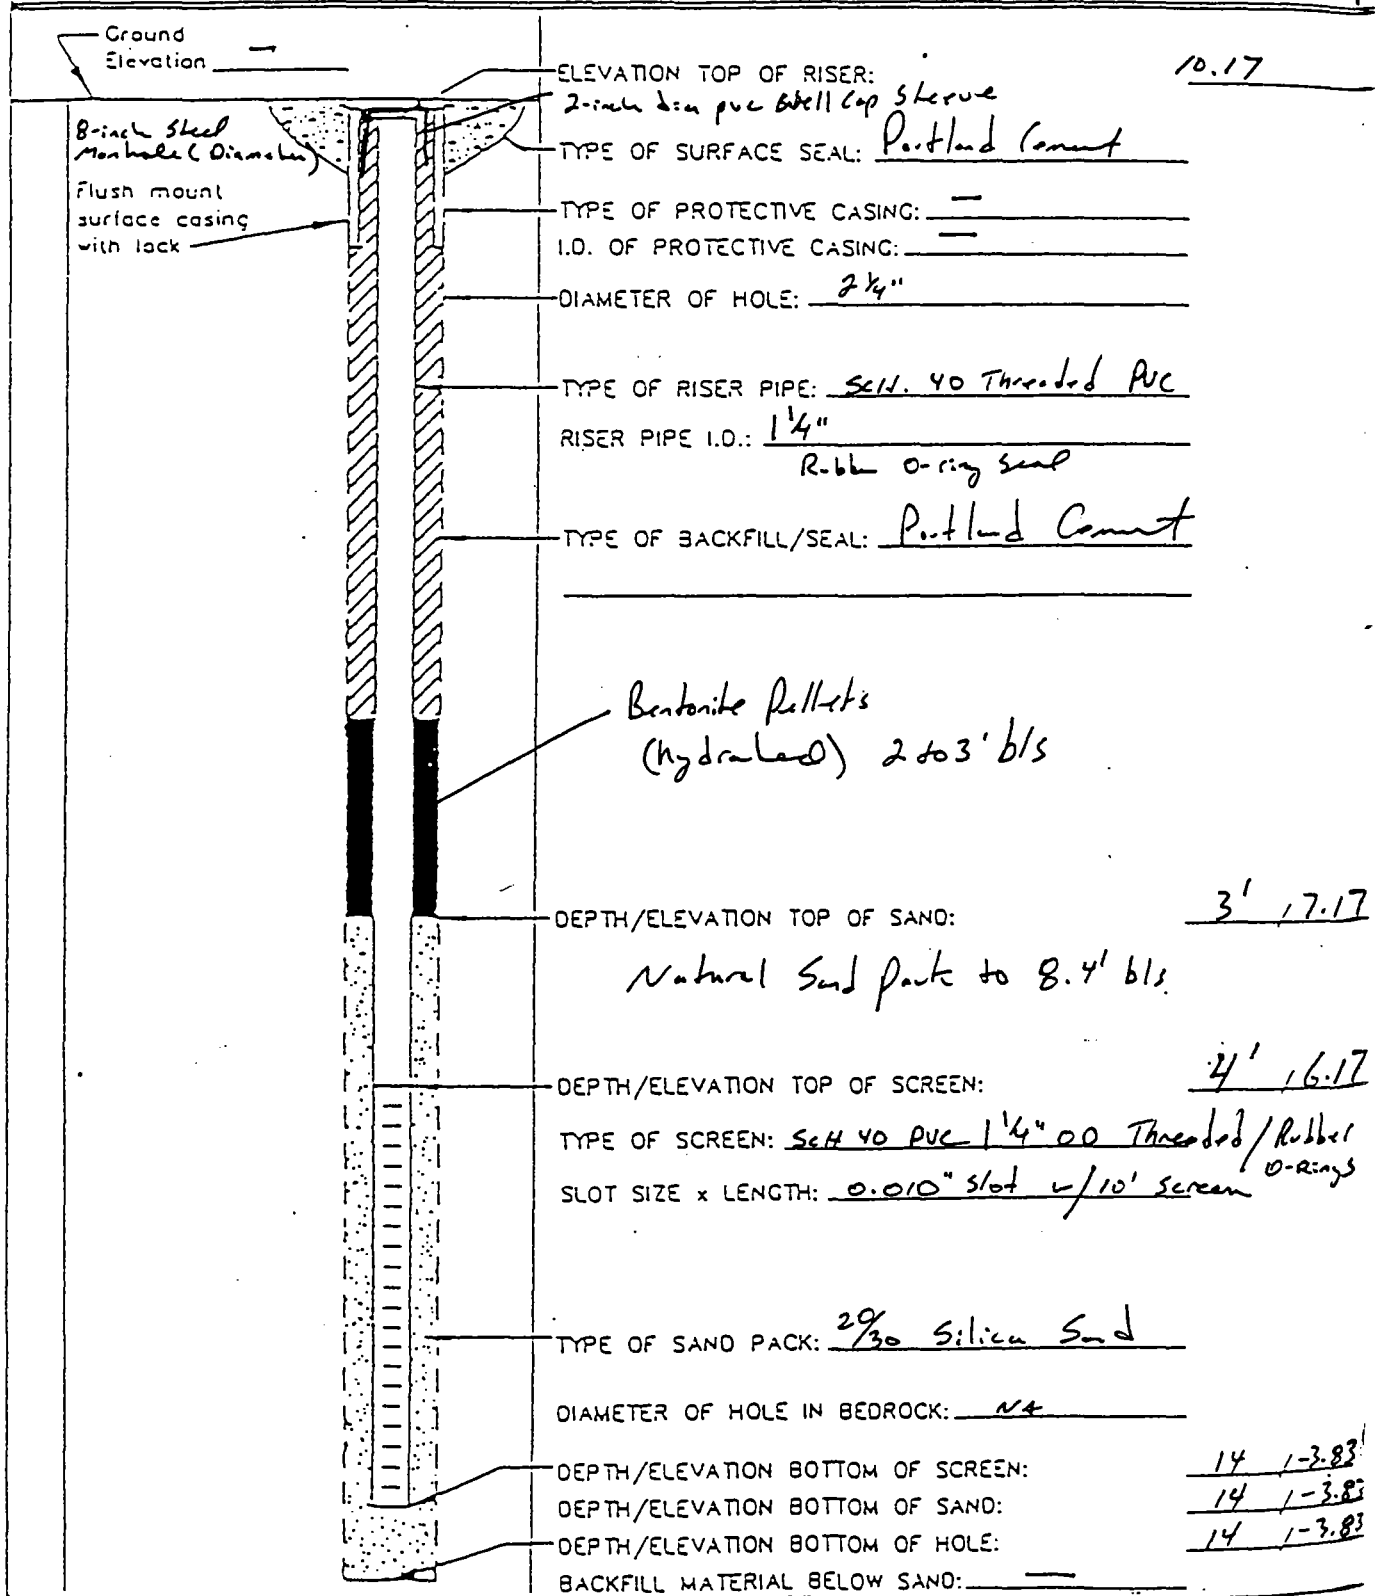 Ground
Elevation —
ELEVATION TOP OF RISER: 10.17
2-inch dia pvc Well Cap Sleeve
8-inch Steel
Manhole (Diameter)
TYPE OF SURFACE SEAL: Portland Cement
Flush mount
surface casing
with lock
TYPE OF PROTECTIVE CASING: —
I.D. OF PROTECTIVE CASING: —
DIAMETER OF HOLE: 2 1/4"
TYPE OF RISER PIPE: SCH. 40 Threaded PVC
RISER PIPE I.D.: 1 1/4"
Rubber O-ring Seal
TYPE OF BACKFILL/SEAL: Portland Cement
Bentonite Pellets
(hydrated) 2 to 3' bls
DEPTH/ELEVATION TOP OF SAND: 3' / 7.17
Natural Sand Pack to 8.4' bls.
DEPTH/ELEVATION TOP OF SCREEN: 4' / 6.17
TYPE OF SCREEN: SCH 40 PVC 1 1/4" OD Threaded / Rubber
O-Rings
SLOT SIZE x LENGTH: 0.010" slot w/10' screen
TYPE OF SAND PACK: 20/30 Silica Sand
DIAMETER OF HOLE IN BEDROCK: NA
DEPTH/ELEVATION BOTTOM OF SCREEN: 14 / -3.83'
DEPTH/ELEVATION BOTTOM OF SAND: 14 / -3.83
DEPTH/ELEVATION BOTTOM OF HOLE: 14 / -3.83
BACKFILL MATERIAL BELOW SAND: —